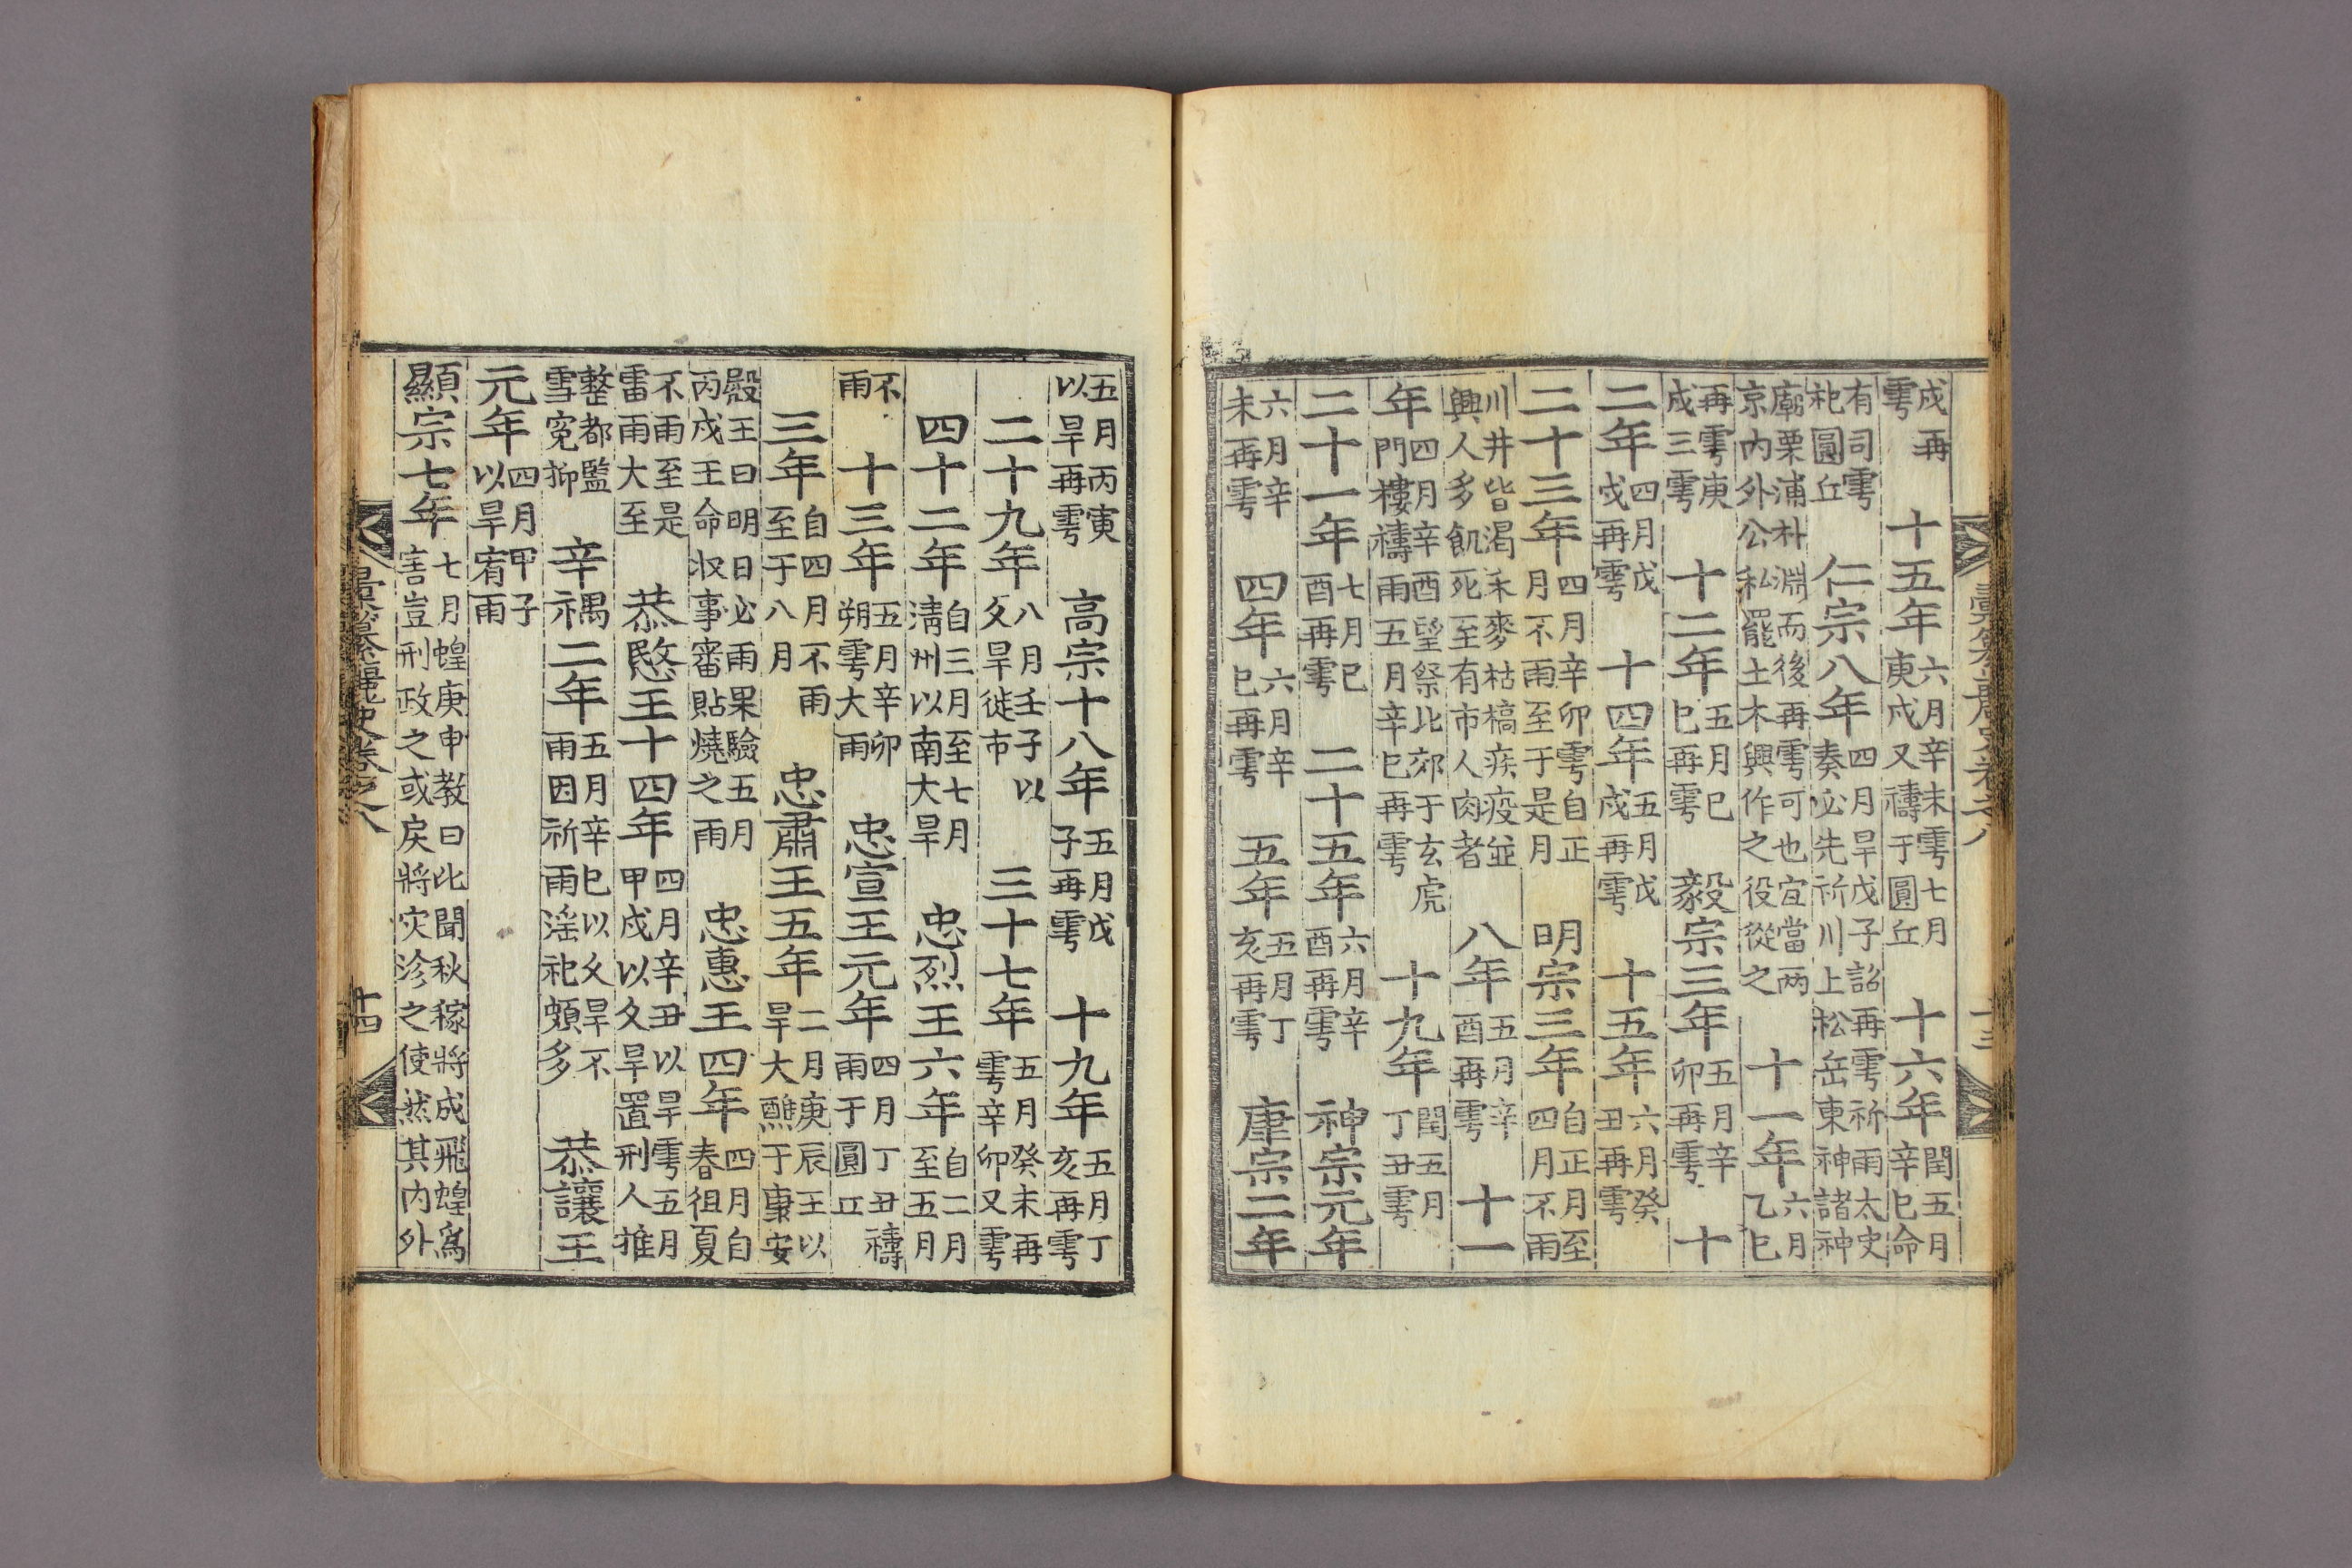 彙纂麗史卷之八 十三
戌再雩 十五年六月辛未雩七月庚戌又禱于圓丘 十六年閏五月辛巳命
有司雩祀圓丘 仁宗八年四月旱戊子詔再雩祈雨太史奏必先祈川上松岳東神諸神
廟栗浦朴淵而後再雩可也宜當两京内外公私罷土木興作之役從之 十一年六月乙巳
再雩庚戌三雩 十二年五月巳巳再雩 毅宗三年五月辛卯再雩 十
二年四月戊戌再雩 十四年五月戊戌再雩 十五年六月癸丑再雩
二十三年四月辛卯雩自正月不雨至于是月 明宗三年自正月至四月不雨
川井皆渴禾麥枯槁疾疫並興人多飢死至有市人肉者 八年五月辛酉再雩 十一
年四月辛酉望祭北郊于玄虎門樓禱雨五月辛巳再雩 十九年閏五月丁丑雩
二十一年七月巳酉再雩 二十五年六月辛酉再雩 神宗元年
六月辛未再雩 四年六月辛巳再雩 五年五月丁亥再雩 康宗二年
五月丙寅以旱再雩 高宗十八年五月戊子再雩 十九年五月丁亥再雩
二十九年八月壬子以久旱徙市 三十七年五月癸未再雩辛卯又雩
四十二年自三月至七月淸州以南大旱 忠烈王六年自二月至五月
不雨 十三年五月辛卯朔雩大雨 忠宣王元年四月丁丑禱雨于圓丘
三年自四月不雨至于八月 忠肅王五年二月庚辰王以旱大醮于康安
殿王曰明日必雨果驗五月丙戌王命収事審貼燒之雨 忠惠王四年四月自春徂夏
不雨至是雷雨大至 恭愍王十四年四月辛丑以旱雩五月甲戌以久旱置刑人推
整都監雪寃抑 辛禑二年五月辛巳以久旱不雨因祈雨滛祀頗多 恭讓王
元年四月甲子以旱宥雨
顯宗七年七月蝗庚申教曰比聞秋稼將成飛蝗爲害豈刑政之或戾將灾沴之使然其内外
彙纂麗史卷之八 十四